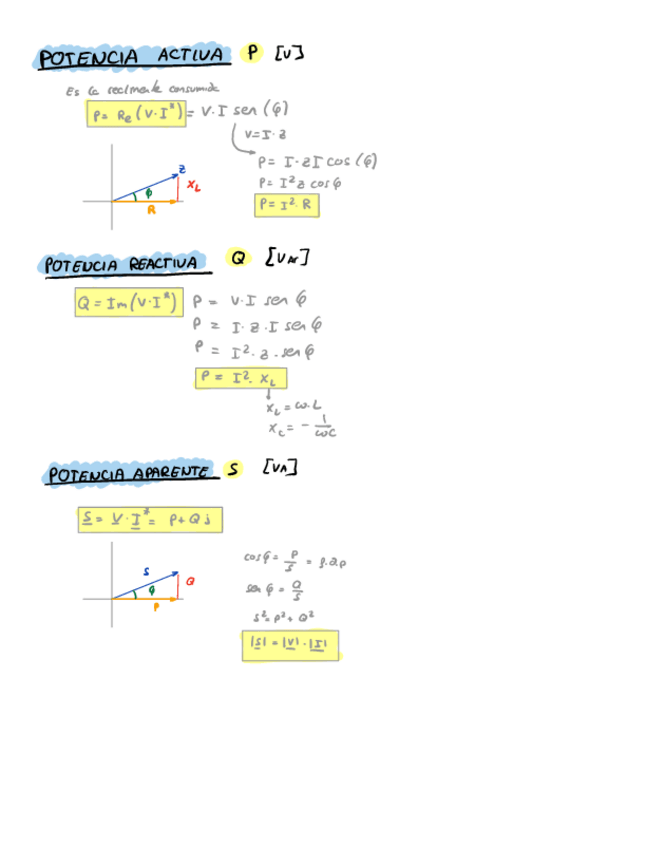 POTENCIA ACTIVA P [V]
Es la realmente consumida
P = Re (V·I*) = V·I sen (φ)
V = I·Z
P = I·ZI cos (φ)
P = I² Z cos φ
P = I²·R
Z
φ
X_L
R
POTENCIA REACTIVA Q [VAr]
Q = Im (V·I*) P = V·I sen φ
P = I·Z·I sen φ
P = I²·Z·sen φ
P = I²·X_L
X_L = ω·L
X_C = - 1/ωC
POTENCIA APARENTE S [VA]
S = V·I* = P + Q j
cos φ = P/S = f.d.p
S
φ
Q
P
sen φ = Q/S
S² = P² + Q²
|S| = |V|·|I|